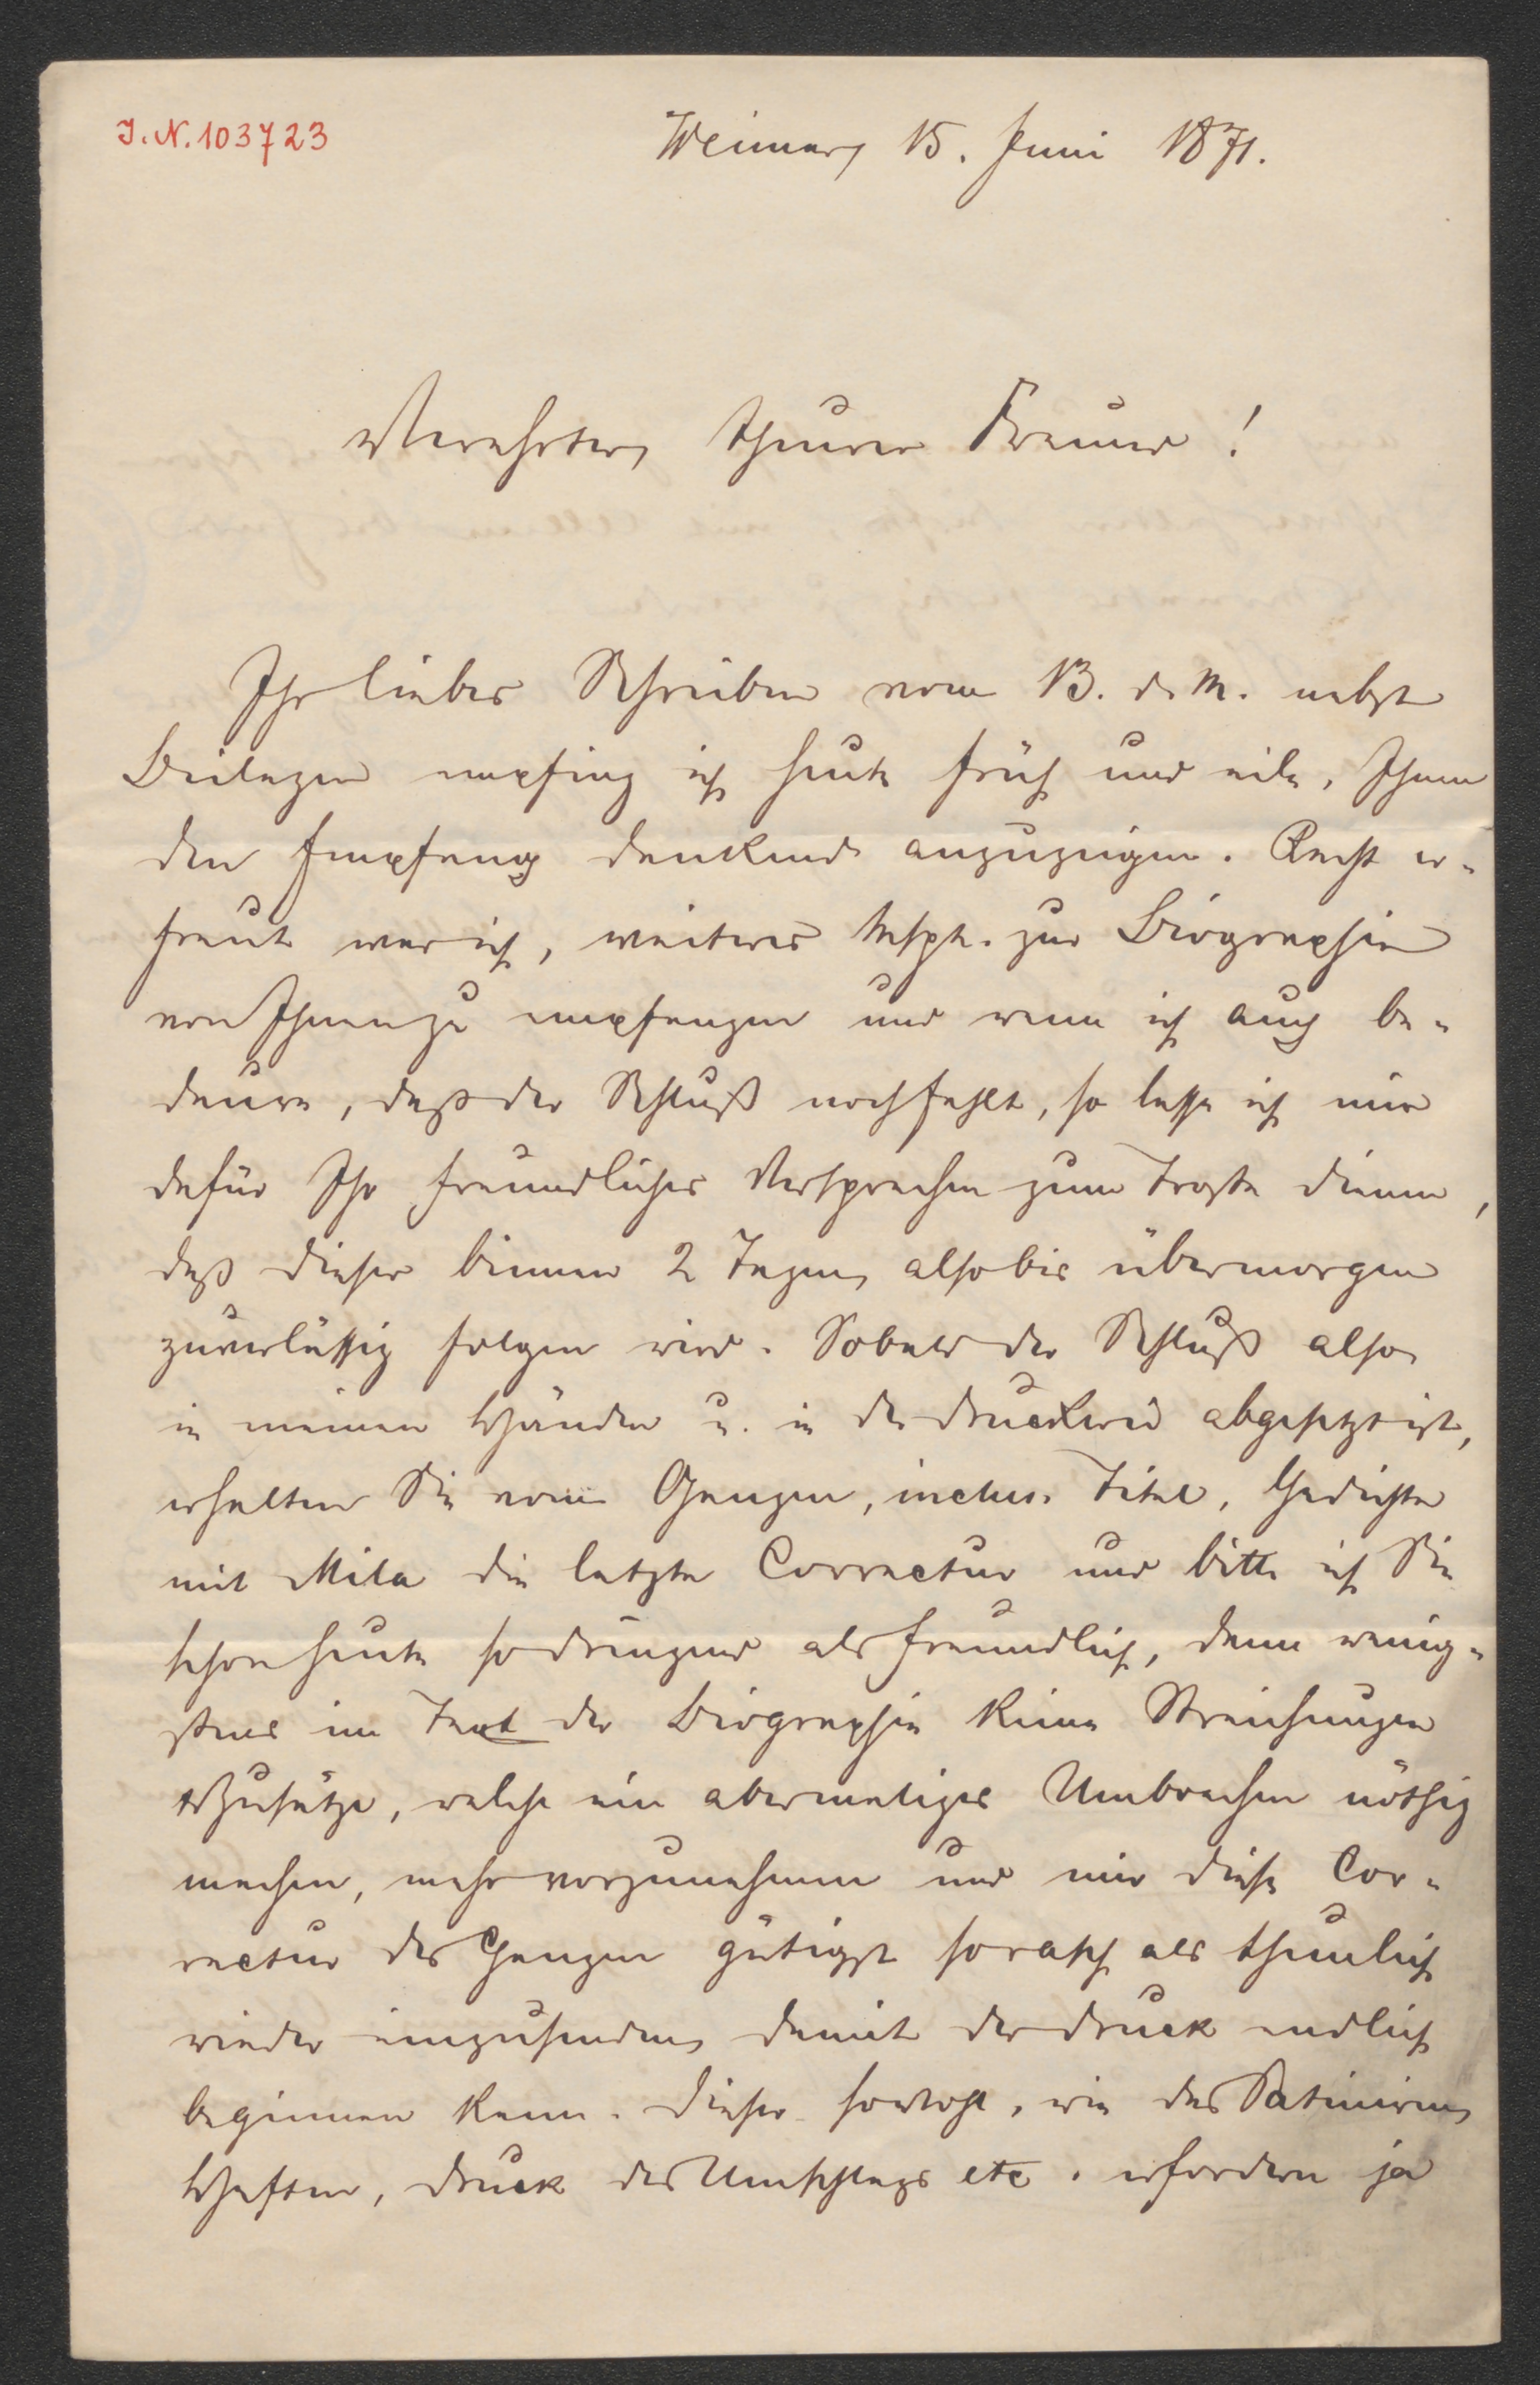 I. N. 103723
Weimar, 15. Juni 1871.
Verehrter, theurer Freund!
Ihr liebes Schreiben vom 13. d. M. nebst
Beilagen empfing ich heute früh und eile, Ihnen
den Empfang dankend anzuzeigen. Recht er-
freut war ich, weiteres Mspt. zur Biographie
von Ihnen zu empfangen und wenn ich auch be-
daure, daß der Schluß noch fehlt, so lasse ich mir
dafür Ihr freundliches Versprechen zum Troste dienen,
daß dieser binnen 2 Tagen, also bis übermorgen
zuverlässig folgen wird. Sobald der Schluß also
in meinen Händen u. in der Druckerei abgesetzt ist,
erhalten Sie vom Ganzen, inclus. Titel, Gedichte
mit Mila die letzte Correctur und bitte ich Sie
schon heute so dringend als freundlich, dann wenig-
stens im Text der Biographie keine Streichungen
Zusätze, welche ein abermaliges Umbrechen nöthig
machen, mehr vorzunehmen und mir diese Cor-
rectur des Ganzen gütigst so rasch als thunlich
wieder einzusenden, damit der Druck endlich
beginnen kann. Dieser sowohl, wie das Satiniren,
Heften, Druck des Umschlags etc. erfordern ja